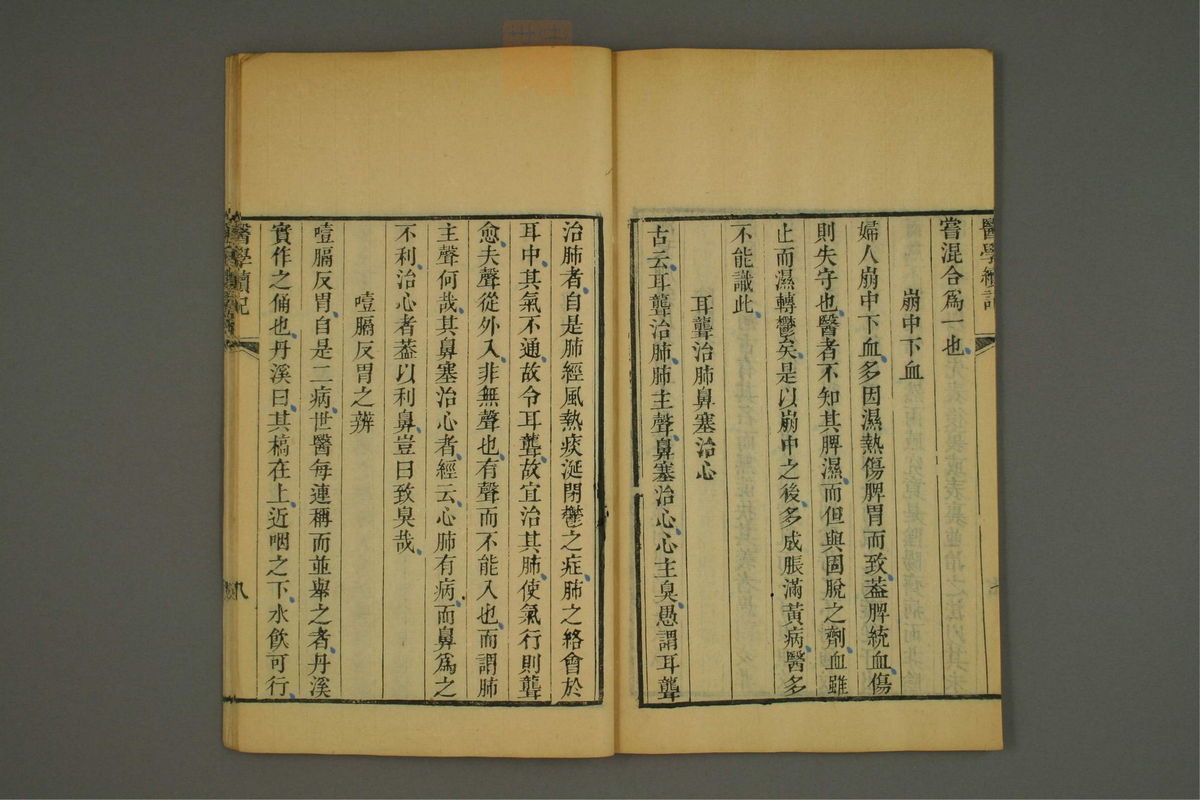 醫學續記
嘗混合爲一也
崩中下血
婦人崩中下血多因濕熱傷脾胃而致葢脾統血傷
則失守也醫者不知其脾濕而但與固脫之劑血雖
止而濕轉鬱矣是以崩中之後多成脹滿黃病醫多
不能識此
耳聾治肺鼻塞治心
古云耳聾治肺肺主聲鼻塞治心心主臭愚謂耳聾
治肺者自是肺經風熱痰涎閉鬱之症肺之絡會於
耳中其氣不通故令耳聾故宜治其肺使氣行則聾
愈夫聲從外入非無聲也有聲而不能入也而謂肺
主聲何哉其鼻塞治心者經云心肺有病而鼻爲之
不利治心者葢以利鼻豈曰致臭哉
噎膈反胃之辨
噎膈反胃自是二病世醫每連稱而並舉之者丹溪
實作之俑也丹溪曰其槁在上近咽之下水飲可行
醫學續記
八